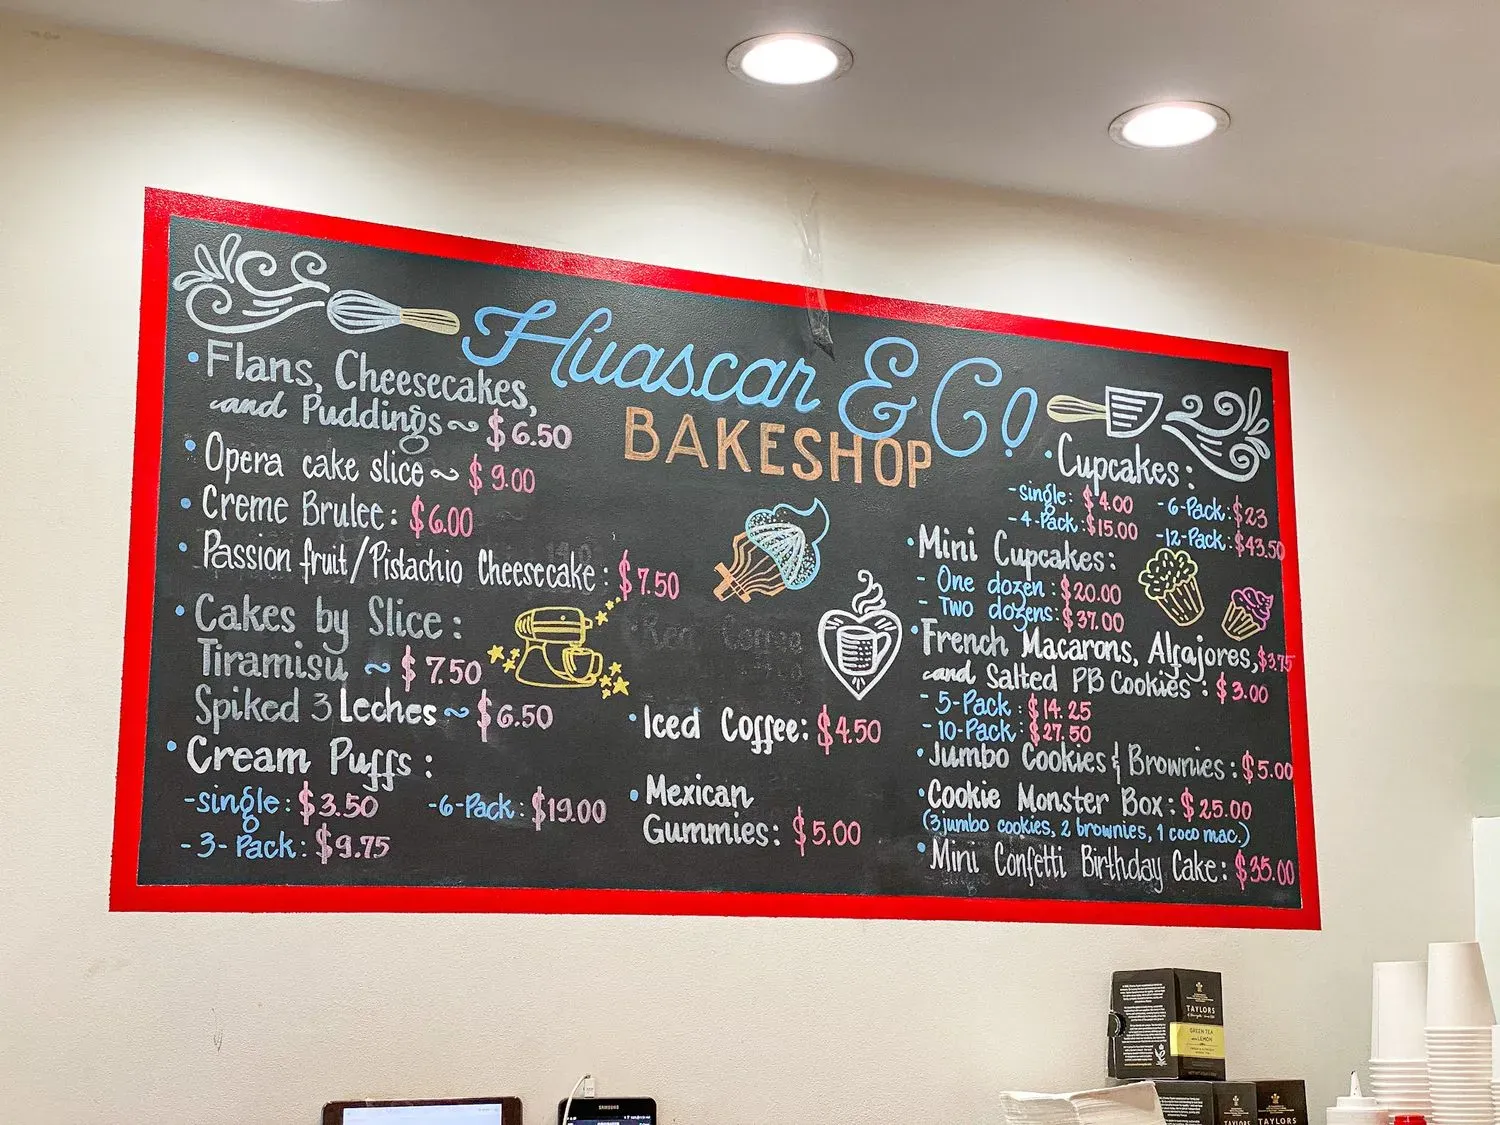 Huascar & Co
BAKESHOP
• Flans, Cheesecakes,
and Puddings ~ $6.50
• Opera cake slice ~ $9.00
• Creme Brulee: $6.00
• Passion fruit/Pistachio Cheesecake: $7.50
• Cakes by Slice:
Tiramisu ~ $7.50
Spiked 3 Leches ~ $6.50
• Cream Puffs:
-single: $3.50 -6-Pack: $19.00
-3-Pack: $9.75
• Iced Coffee: $4.50
• Mexican
Gummies: $5.00
• Cupcakes:
-single: $4.00 -6-Pack: $23
-4-Pack: $15.00 -12-Pack: $43.50
• Mini Cupcakes:
- One dozen: $20.00
- Two dozens: $37.00
• French Macarons, Alfajores, $3.75
and Salted PB Cookies: $3.00
- 5-Pack: $14.25
- 10-Pack: $27.50
• Jumbo Cookies & Brownies: $5.00
• Cookie Monster Box: $25.00
(3 jumbo cookies, 2 brownies, 1 coco mac.)
• Mini Confetti Birthday Cake: $35.00
TAYLORS
GREEN TEA
with LEMON
SAMSUNG
TAYLORS
TAYLORS